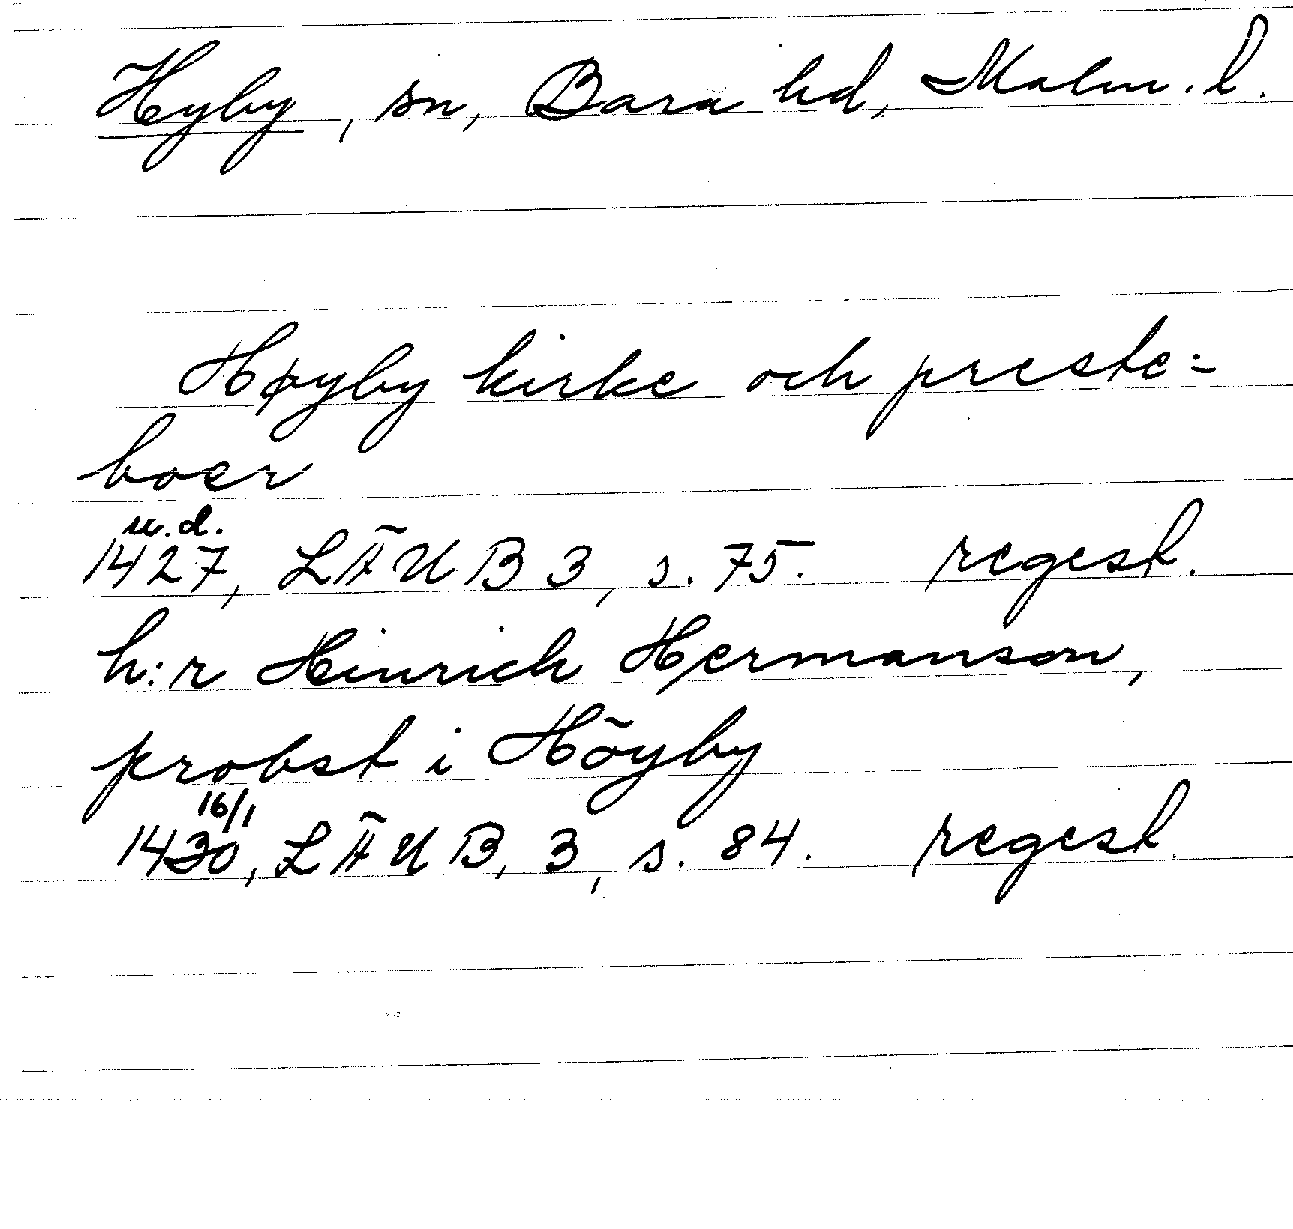 Hyby, sn, Bara hd, Malm. l.
Høyby kirke och preste-
boer
u.d.
1427, LÄUB 3, s. 75. regest.
h:r Hinrich Hermanson,
probst i Höyby
16/1
1430, LÄUB, 3, s. 84. regest.